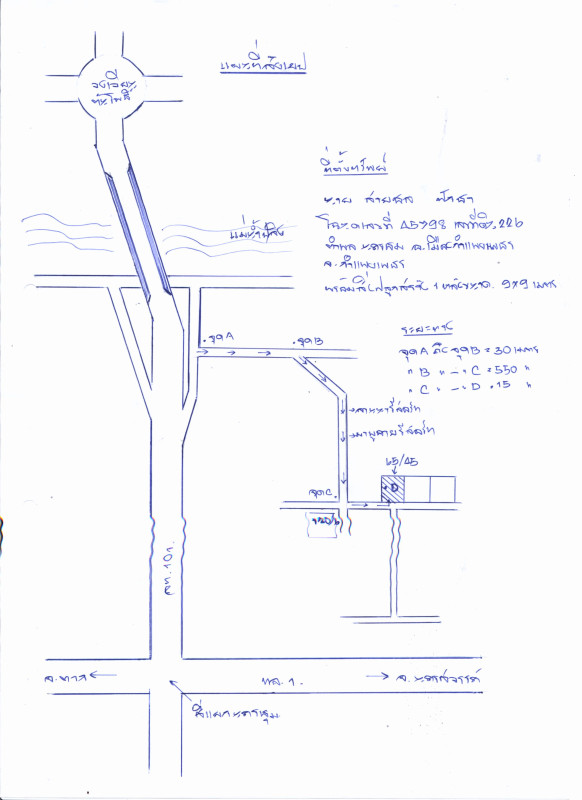 แผนที่สังเขป
วงเวียน
ต้นโพธิ์
ที่ตั้งทรัพย์
แม่น้ำปิง
นาย สายชล
โฉนดเลขที่ 45798 เลขที่ดิน 226
ตำบล นครชุม อ.เมืองกำแพงเพชร
จ.กำแพงเพชร
พร้อมสิ่งปลูกสร้าง 1 หลัง ขนาด 9x9 เมตร
ระยะทาง
จุด A
จุด B
จุด A ถึง จุด B = 30 เมตร
" B " - " C = 550 "
" C " - " D = 15 "
65/45
จุด C
D
120/6
ทล. 101
จ.ตาก
ทล. 1
จ. นครสวรรค์
สี่แยกนครชุม